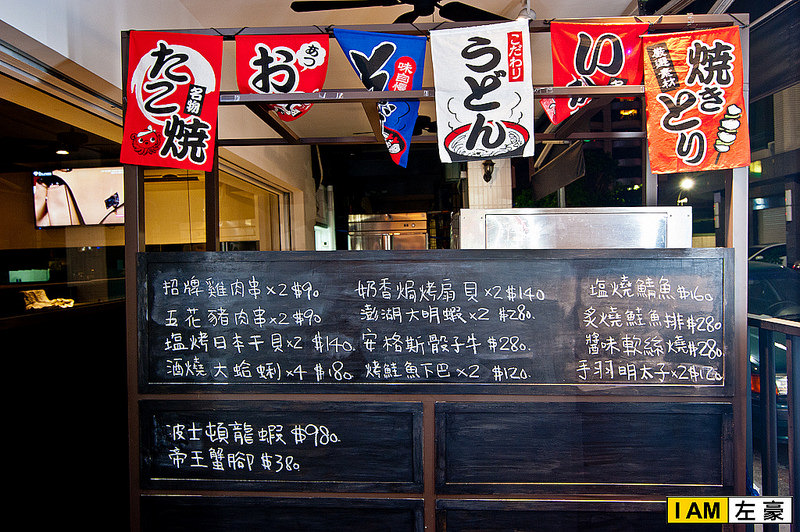 たこ焼
名物
おでん
あつあつ
味自慢
うどん
こだわり
いか
焼きとり
厳選素材
招牌雞肉串×2 $90
五花豬肉串×2 $90
塩烤日本干貝×2 $140
酒燒大蛤蜊×4 $180
奶香焗烤扇貝×2 $140
澎湖大明蝦×2 $280
安格斯骰子牛 $280
烤鮭魚下巴×2 $120
塩燒鯖魚 $160
炙燒鮭魚排 $280
醬味軟絲燒 $280
手羽明太子×2 $120
波士頓龍蝦 $980
帝王蟹腳 $380
I AM 左豪